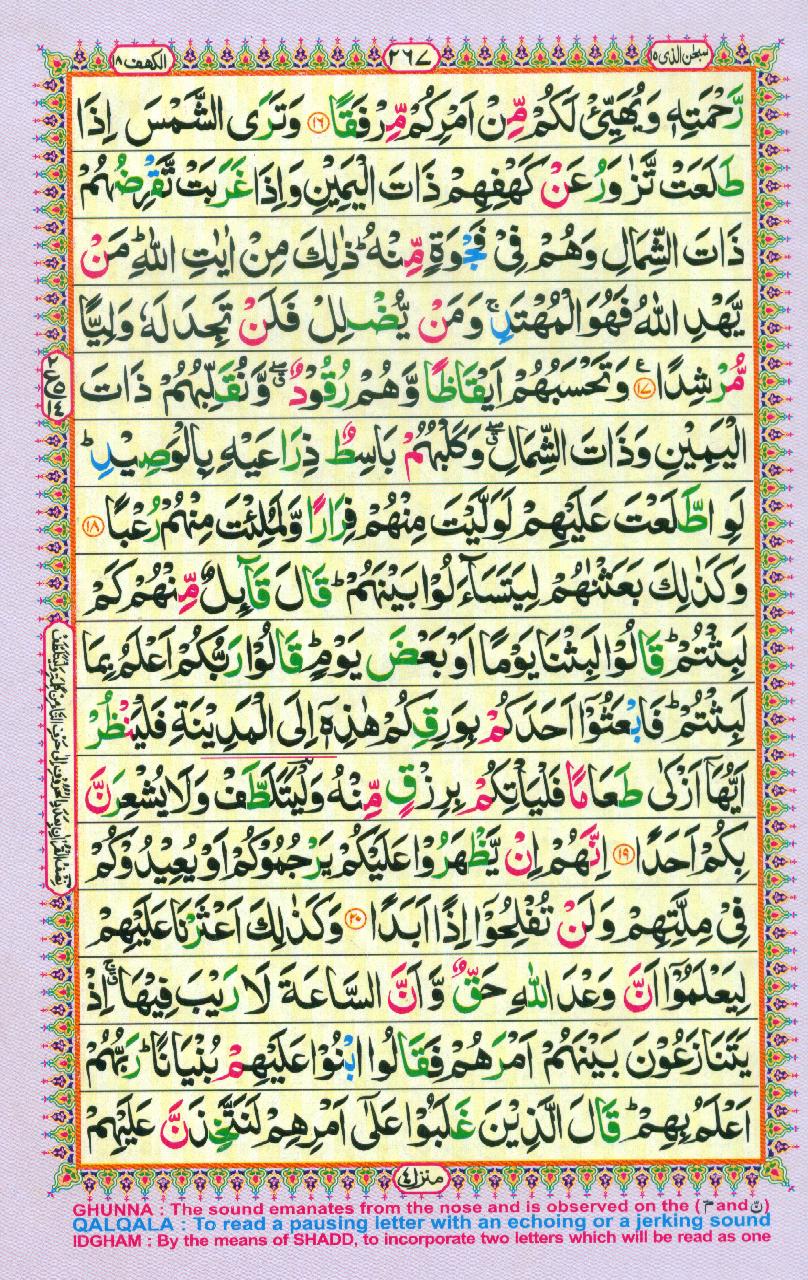 سبحٰن الذی ۱۵
۲۶۷
الکهف ۱۸
رَّحْمَتِهٖ وَيُهَيِّئْ لَكُمْ مِّنْ اَمْرِكُمْ مِّرْفَقًا ۱۶ وَتَرَى الشَّمْسَ اِذَا
طَلَعَتْ تَّزٰوَرُ عَنْ كَهْفِهِمْ ذَاتَ الْيَمِيْنِ وَاِذَا غَرَبَتْ تَّقْرِضُهُمْ
ذَاتَ الشِّمَالِ وَهُمْ فِيْ فَجْوَةٍ مِّنْهُ ؕ ذٰلِكَ مِنْ اٰيٰتِ اللّٰهِ ؕ مَنْ
يَّهْدِ اللّٰهُ فَهُوَ الْمُهْتَدِ ۚ وَمَنْ يُّضْلِلْ فَلَنْ تَجِدَ لَهٗ وَلِيًّا
مُّرْشِدًا ۱۷ وَتَحْسَبُهُمْ اَيْقَاظًا وَّهُمْ رُقُوْدٌ ۖ وَّنُقَلِّبُهُمْ ذَاتَ
الْيَمِيْنِ وَذَاتَ الشِّمَالِ ۖ وَكَلْبُهُمْ بَاسِطٌ ذِرَاعَيْهِ بِالْوَصِيْدِ ؕ
لَوِ اطَّلَعْتَ عَلَيْهِمْ لَوَلَّيْتَ مِنْهُمْ فِرَارًا وَّلَمُلِئْتَ مِنْهُمْ رُعْبًا ۱۸
وَكَذٰلِكَ بَعَثْنٰهُمْ لِيَتَسَآءَلُوْا بَيْنَهُمْ ؕ قَالَ قَآئِلٌ مِّنْهُمْ كَمْ
لَبِثْتُمْ ؕ قَالُوْا لَبِثْنَا يَوْمًا اَوْ بَعْضَ يَوْمٍ ؕ قَالُوْا رَبُّكُمْ اَعْلَمُ بِمَا
لَبِثْتُمْ ؕ فَابْعَثُوْۤا اَحَدَكُمْ بِوَرِقِكُمْ هٰذِهٖۤ اِلَى الْمَدِيْنَةِ فَلْيَنْظُرْ
اَيُّهَاۤ اَزْكٰى طَعَامًا فَلْيَاْتِكُمْ بِرِزْقٍ مِّنْهُ وَلْيَتَلَطَّفْ وَلَا يُشْعِرَنَّ
بِكُمْ اَحَدًا ۱۹ اِنَّهُمْ اِنْ يَّظْهَرُوْا عَلَيْكُمْ يَرْجُمُوْكُمْ اَوْ يُعِيْدُوْكُمْ
فِيْ مِلَّتِهِمْ وَلَنْ تُفْلِحُوْۤا اِذًا اَبَدًا ۲۰ وَكَذٰلِكَ اَعْثَرْنَا عَلَيْهِمْ
لِيَعْلَمُوْۤا اَنَّ وَعْدَ اللّٰهِ حَقٌّ وَّاَنَّ السَّاعَةَ لَا رَيْبَ فِيْهَا ۚ اِذْ
يَتَنَازَعُوْنَ بَيْنَهُمْ اَمْرَهُمْ فَقَالُوا ابْنُوْا عَلَيْهِمْ بُنْيَانًا ؕ رَبُّهُمْ
اَعْلَمُ بِهِمْ ؕ قَالَ الَّذِيْنَ غَلَبُوْا عَلٰۤى اَمْرِهِمْ لَنَتَّخِذَنَّ عَلَيْهِمْ
منزل ۴
GHUNNA : The sound emanates from the nose and is observed on the ( مّ and نّ )
QALQALA : To read a pausing letter with an echoing or a jerking sound
IDGHAM : By the means of SHADD, to incorporate two letters which will be read as one